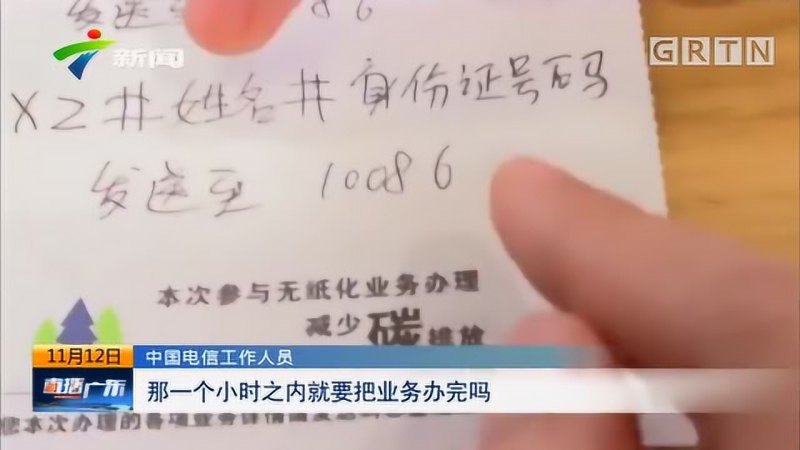 发送至 86
新闻
GRTN
X2#姓名#身份证号码
发送至 10086
本次参与无纸化业务办理
减少碳排放
11月12日
中国电信工作人员
直播广东
那一个小时之内就要把业务办完吗
您本次办理的各项业务详情